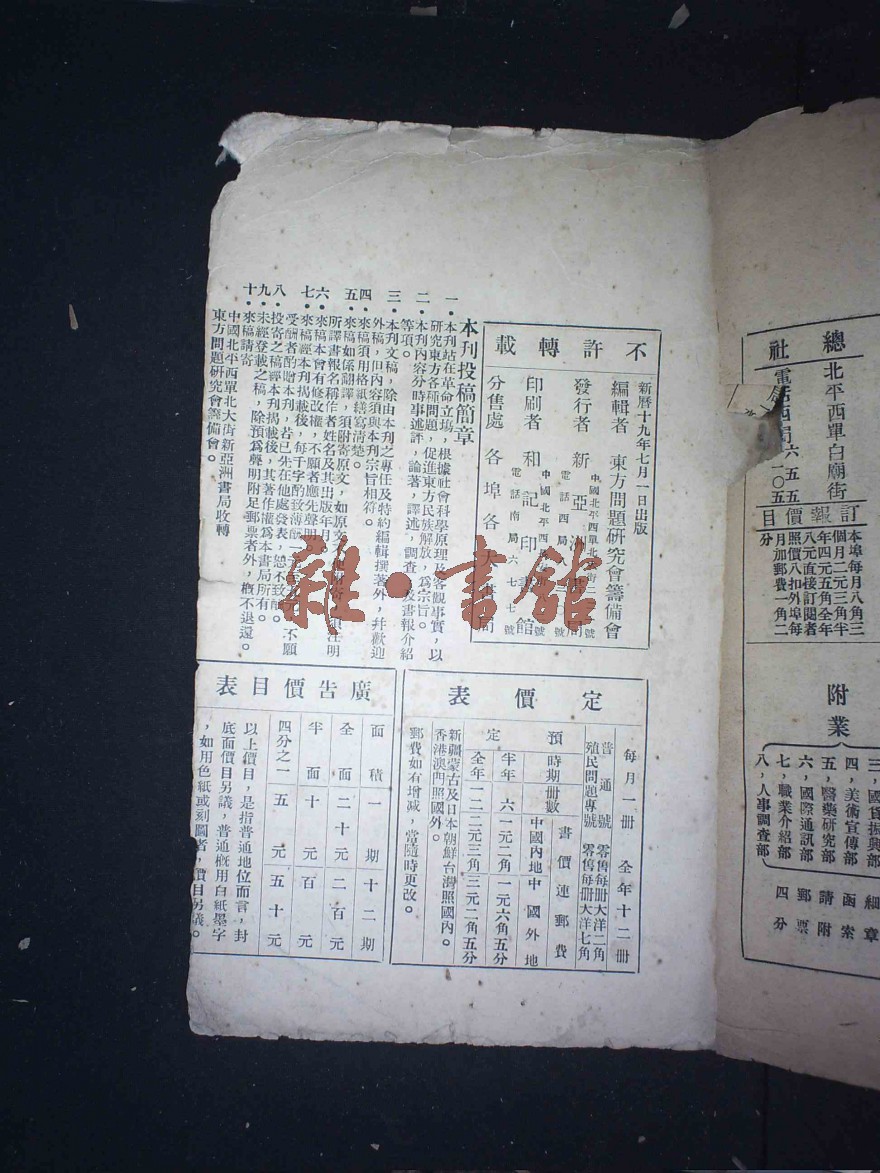 總社
北平西單白廟街
電話西局六五五一〇五
訂報價目
本埠每月八角三
個月二元三角半
年四元五角全年
八元直接訂閱者
照價八扣外埠每
月加郵費一角二
分
附業
三，國貨振興部
四，美術宣傳部
五，醫藥研究部
六，國際通訊部
七，職業介紹部
八，人事調查部
細章
函索
請附
郵票
四分
不許轉載
新曆十九年七月一日出版
編輯者 東方問題研究會籌備會
發行者 新亞洲書局
中國北平西單北大街
電話西局
印刷者 和記印書館
中國北平西
電話南局六七七號
分售處 各埠各大書局
本刊投稿簡章
一．本刊站在革命立塲，根據社會科學原理及客觀事實，以
研究東方各種問題，促進東方民族解放，爲宗旨。
二．本刊內容分時事述評，論著，譯述，調查，及書報介紹
等項。
三．本刊文稿，除由本刊之專任及特約編輯撰著外，幷歡迎
外稿，但內容須與本刊宗旨相符。
四．來稿須用格紙繕寫清楚。
五．來稿如係翻譯，須附寄原文，如原文不便附寄，須注明
所譯書報名稱作者姓名及其出版年月。
六．來稿本會有修改權，不願者應先聲明。
七．來稿經本刊揭載後，每千字酌致薄酬一元至元，不願
受酬者酌贈本刊，若已先在他處發表，恕不致酬。
八．投寄之稿經本刊揭載後，其著作權爲本書局所有。
九．未經登載之稿，除預爲聲明附足郵票者外，概不退還。
十．來稿請寄
中國北平西單北大街新亞洲書局收轉
東方問題研究會籌備會。
定價表
每月一冊 全年十二冊
普通號 零售每冊大洋二角
殖民問題專號 零售每冊大洋七角
預定
時期 冊數 書價連郵費
中國內地 中國外地
半年 六 一元二角 一元六角五分
全年 一二 二元三角 三元二角五分
新疆蒙古及日本朝鮮台灣照國內。
香港澳門照國外。
郵費如有增減，當隨時更改。
廣告價目表
面積 一期 十二期
全面 二十元 二百元
半面 十元 百元
四分之一 五元 五十元
以上價目，是指普通地位而言，封
底面價目另議，普通概用白紙墨字
，如用色紙或刻圖者，價目另議。
雜·書館